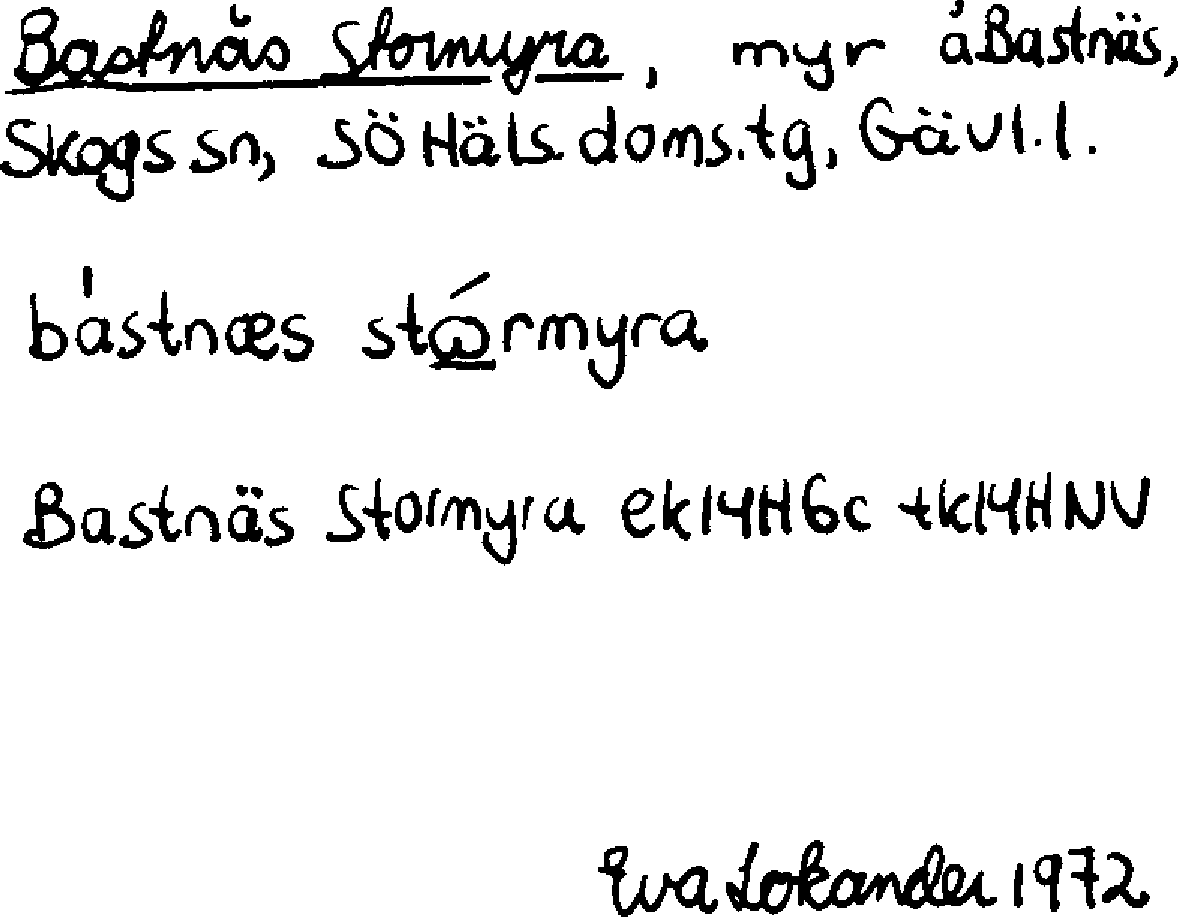 Bastnäs Stormyra, myr å Bastnäs,
Skogs sn, SÖ Häls. doms.tg, Gävl.l.
bástnæs stɷ́rmyra
Bastnäs Stormyra ek14H6c tk14HNV
Eva Lokander 1972